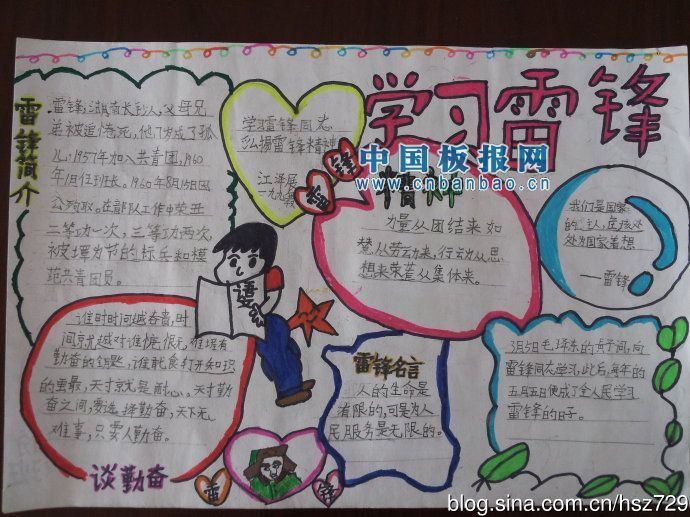 学习雷锋
雷锋简介
雷锋，湖南长沙人，父母兄
弟被迫惨死，他7岁成了孤
儿。1957年加入共青团，1960
年1月任班长。1960年8月15日因
公殉职。在部队工作中荣立
二等功一次，三等功两次，
被
为节约标兵和模
范共青团员。
学习雷锋同志
弘扬雷锋精神
江泽民
雷
锋
中国板报网
www.cnbanbao.cn
力量从团结来，
慧从劳动来，行动从思
想来荣誉从集体来。
我们是国家
的主人，应该处
处为国家着想
——雷锋
谁时时间越吝啬，时
间就越对谁慷慨，
谁拥有
勤奋的钥匙，谁就能打开知识
的
天才就是耐心。天才勤
奋之间，要选择勤奋，天下无
难事，只要人勤奋。
谈勤奋
雷锋名言
人的生命是
有限的，可是为人
民服务是无限的。
3月5日毛泽东的
向
雷锋同志学习，此后，每年的
五月五日便成了全人民学习
雷锋的日子。
雷
锋
blog.sina.com.cn/hsz729